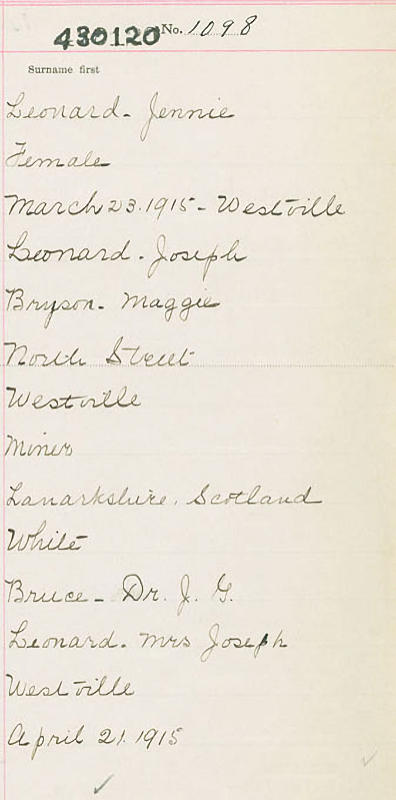 430120 No. 1098
Surname first
Leonard - Jennie
Female
March 23. 1915 - Westville
Leonard - Joseph
Bryson - Maggie
North Street
Westville
Miner
Lanarkshire, Scotland
White
Bruce - Dr. J. G.
Leonard - Mrs Joseph
Westville
April 21. 1915